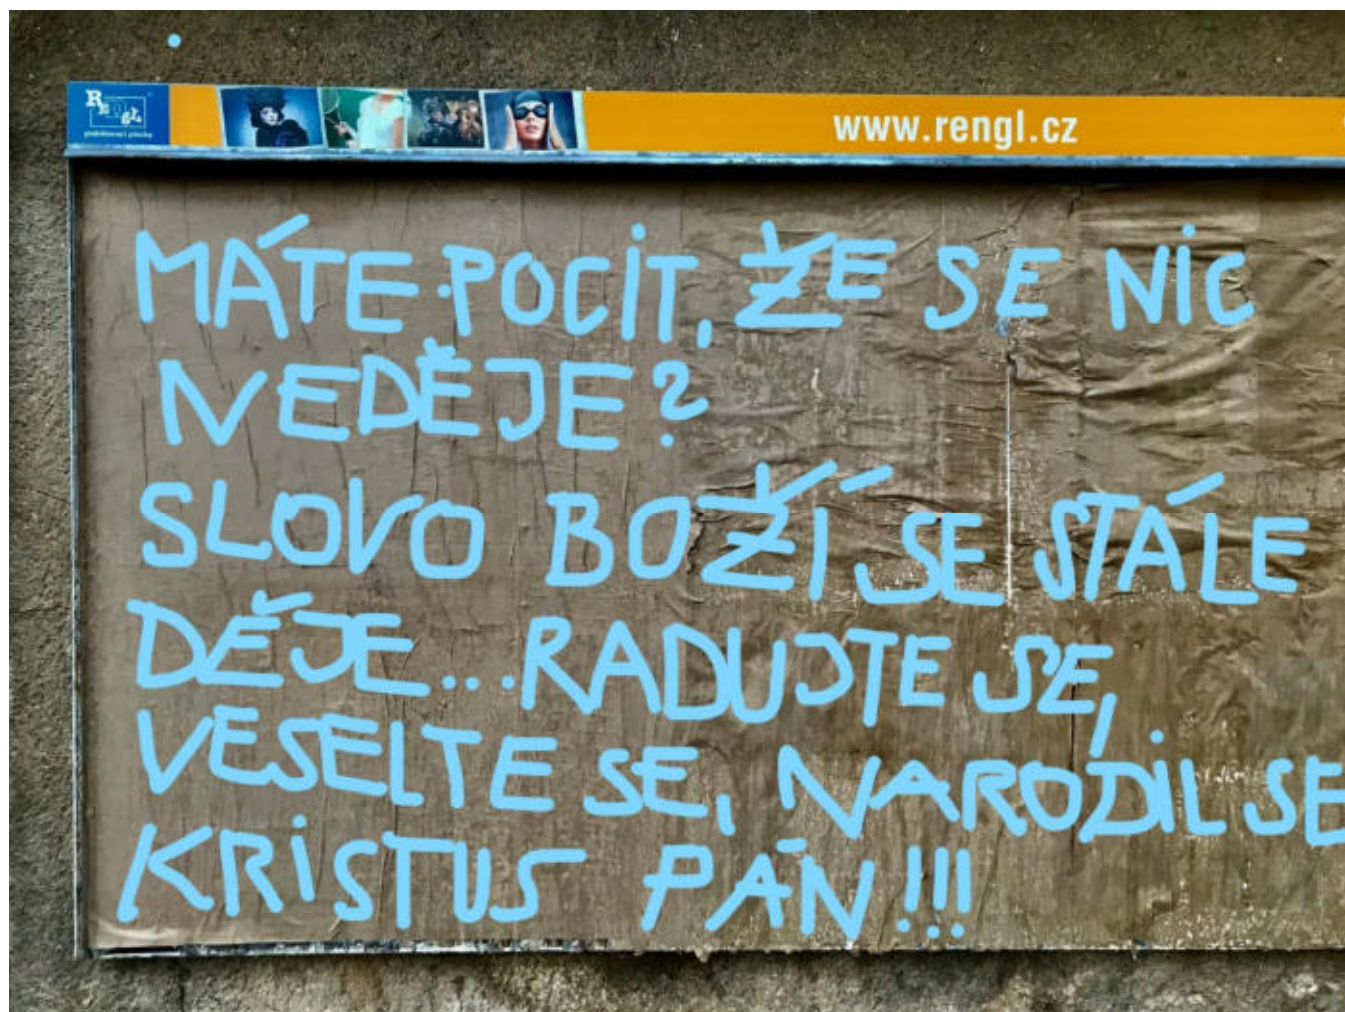 Rengl
www.rengl.cz
MÁTE POCIT, ŽE SE NIC
NEDĚJE?
SLOVO BOŽÍ SE STÁLE
DĚJE...RADUJTE SE,
VESELTE SE, NARODIL SE
KRISTUS PÁN!!!